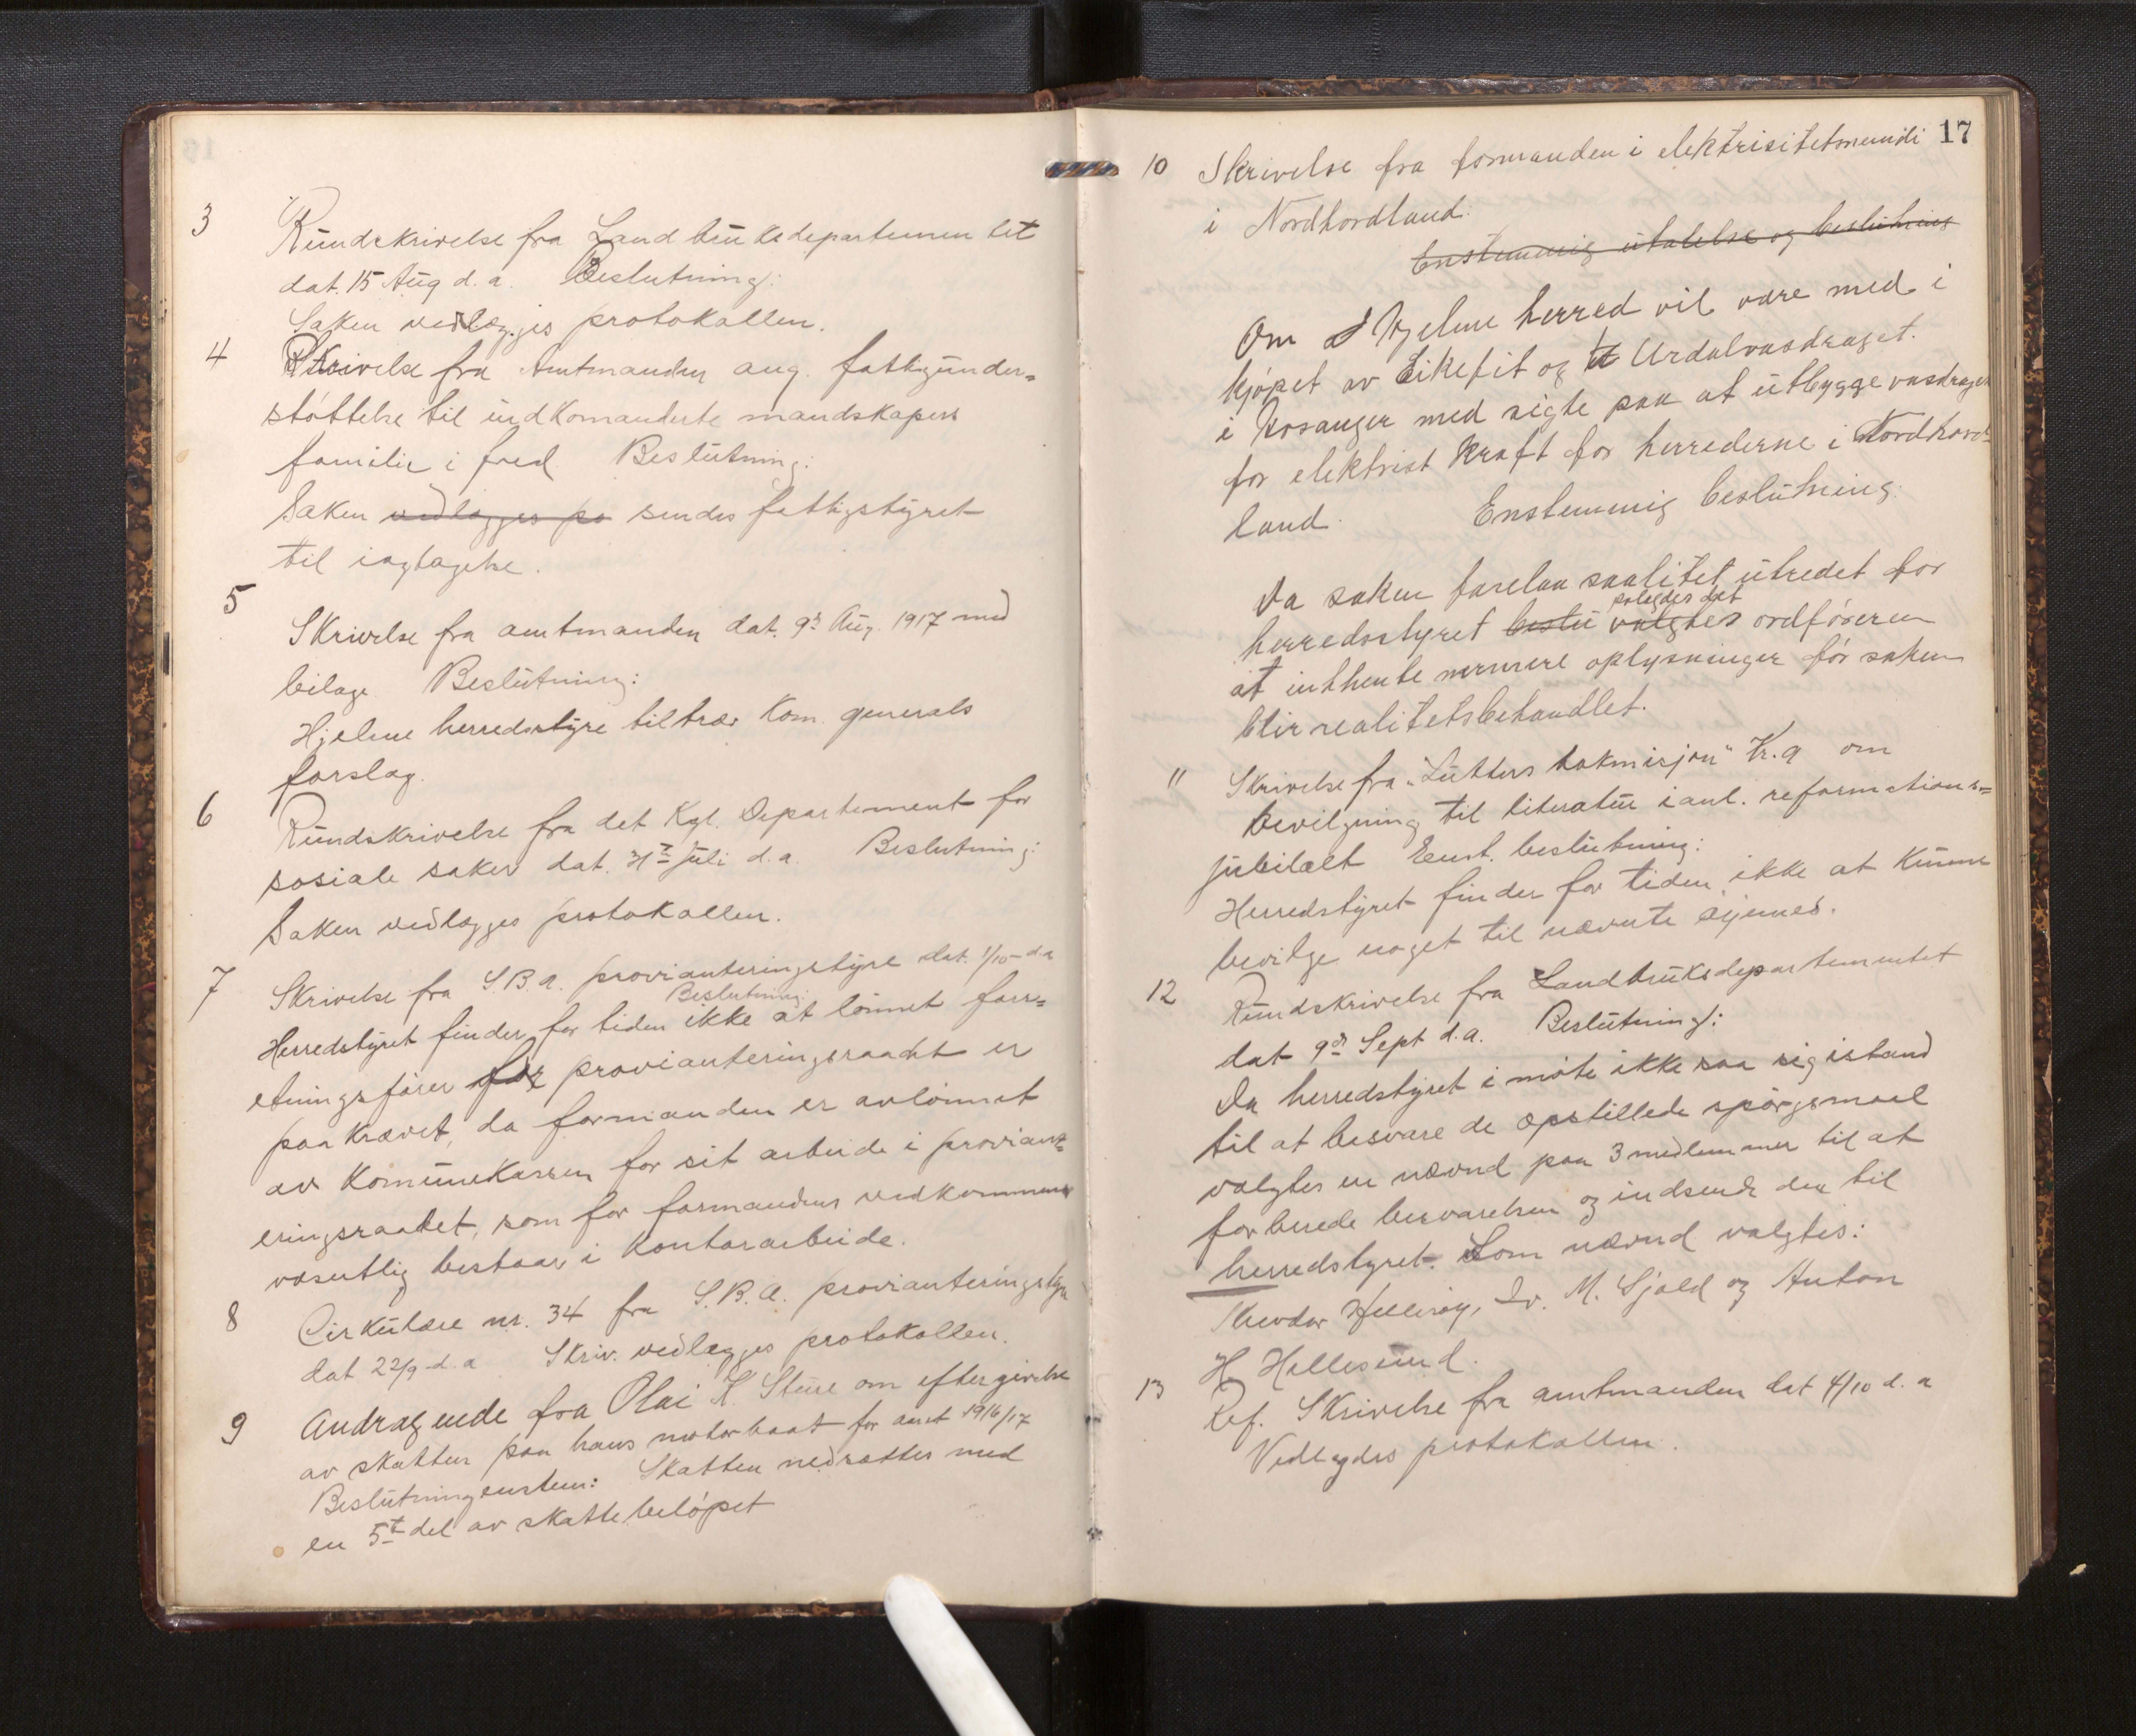 3 Rundskrivelse fra Landbruksdepartementet
dat. 15 Aug d. a. Beslutning:
Saken vedlægges protokollen.
4 Skrivelse fra Amtmanden ang. fattigunder=
støttelse til indkomanderte mandskapers
familie i fred. Beslutning:
Saken vedlægges po sendes fattigstyret
til iagtagelse.
5
Skrivelse fra amtmanden dat. 9de Aug. 1917 med
bilage. Beslutning:
Hjelme herredsstyre tiltrær Kom. generals
forslag.
6 Rundskrivelse fra det Kgl. Departement for
sosiale saker dat. juli d.a. Beslutning:
Saken vedlægges protokollen.
7 Skrivelse fra S.B.a. provianteringsstyre dat. 1/10- d.a
Beslutning:
Herredstyret finder for tiden ikke at lønnet forr=
etningsfører for provianteringsraadet er
paakrævet, da formanden er avlønnet
av Komunekassen for sit arbeide i proviant=
eringsraadet, som for formandens vedkommende
væsentlig bestaar i Kontorarbeide.
8 Cirkulære nr. 34 fra S.B.A. provianteringsstyre
dat 22/9- d. a Skriv. vedlægges protokollen.
9 Andragende fra Olai K. Sture om eftergivelse
av skatten paa hans motorbaat for aaret 1916/17
Beslutning enstem: Skatten nedsættes med
en 5te del av skattebeløpet
17
10 Skrivelse fra formanden i elektrisitetsnemdi
i Nordhordland:
Enstemmig uttalelse og beslutning
Om Hjelme herred vil være med i
kjøpet av Eikefet og Urdalvasdraget
i Hosanger med sigte paa at utbygge vasdraget
for elektrisk Kraft for herrederne i Nordhord=
land. Enstemmig beslutning:
Da saken forelaa saalitet utredet for
paalegdes det
herredsstyret beslu valgtes ordføreren
at indhente nærmere oplysninger før saken
blir realitetsbehandlet.
11 Skrivelse fra "Luthers bokmisjon" Kr.a om
bevilgning til literatur i anl. reformations=
jubilæet Enst. beslutning:
Herredstyret finder for tiden ikke at kunne
bevilge noget til nævnte øiemed.
12 Rundskrivelse fra Landbruksdepartementet
dat 9de Sept d.a. Beslutning:
Da herredstyret i møte ikke saa sig istand
til at besvare de opstillede spørgsmaal
valgtes en nævnd paa 3 medlemmer til at
forberede besvarelsen og indsende den til
herredstyret. Som nævnd valgtes:
Theodor Hellesøy, Iv. M. Sjold og Anton
H. Hellesund.
13 Ref. Skrivelse fra amtmanden dat 4/10 d. a
Vedlegdes protokollen.